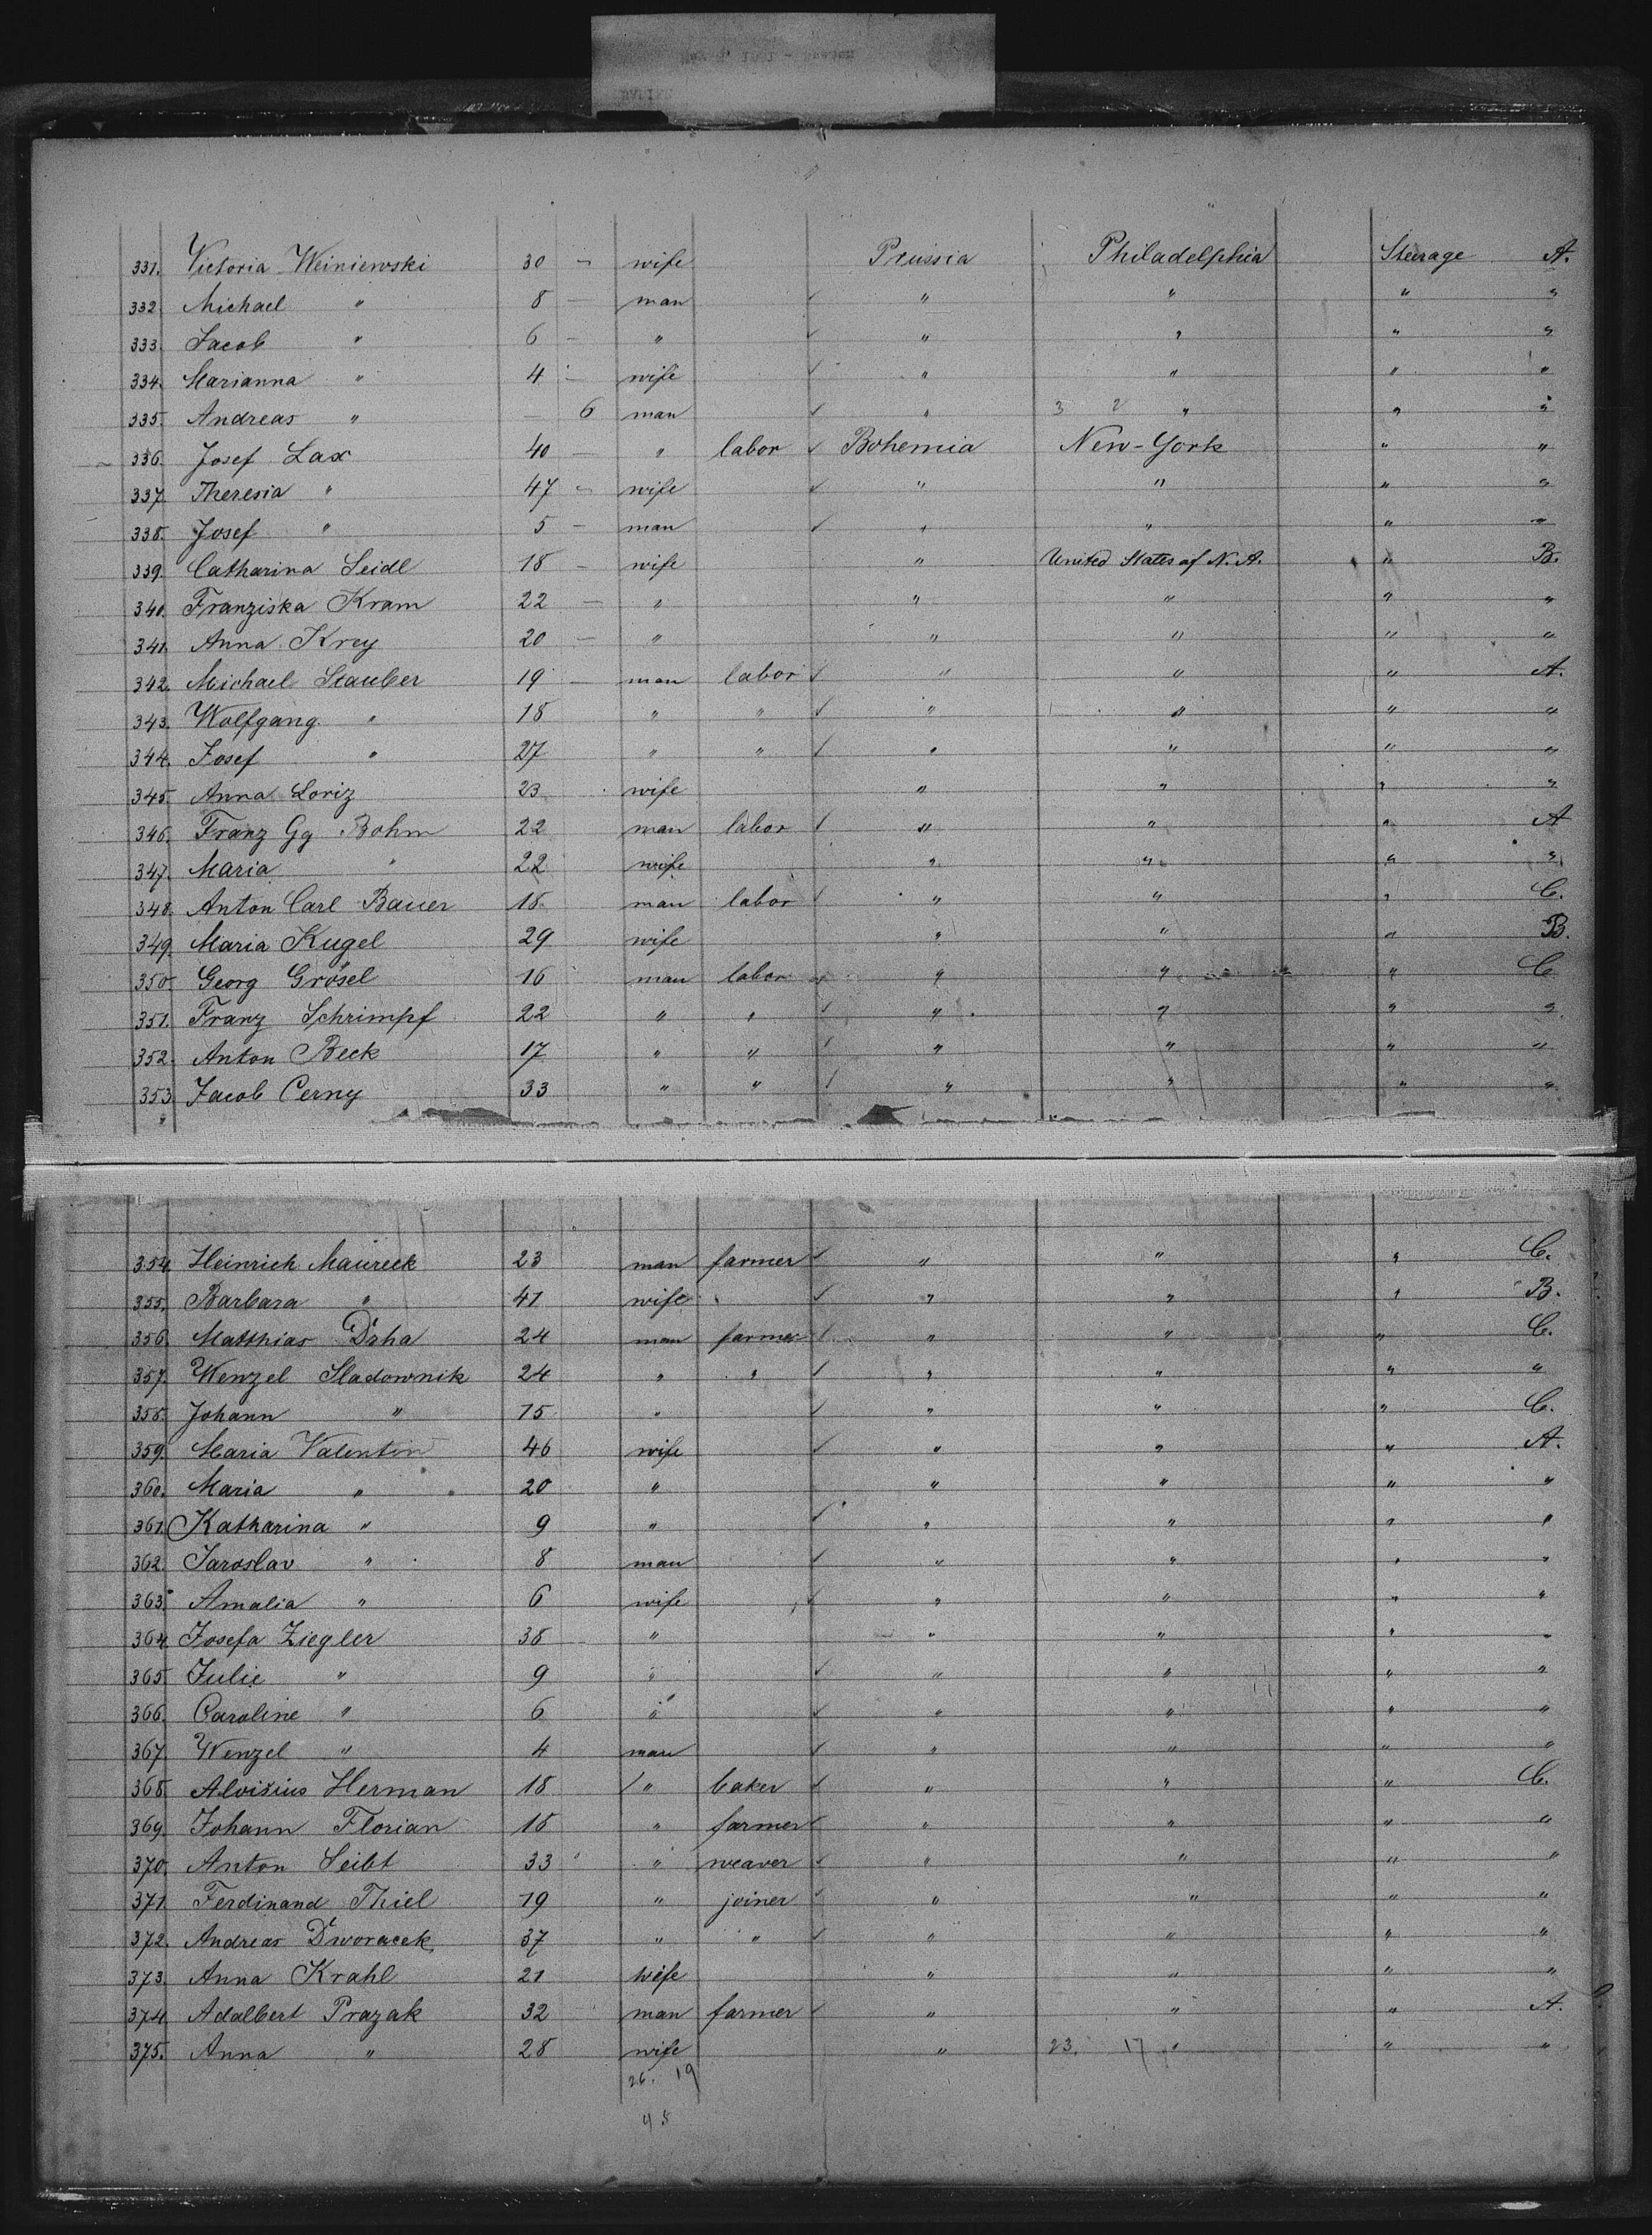 331. Victoria Weiniewski 30 - wife Prussia Philadelphia Steerage A.
332. Michael " 8 - man ✓ " " " "
333. Jacob " 6 - " ✓ " " " "
334. Marianna " 4 - wife ✓ " " " "
335. Andreas " - 6 man ✓ " 3 2 " " "
336. Josef Lax 40 - " labor ✓ Bohemia New-York " "
337. Theresia " 47 - wife ✓ " " " "
338. Josef " 5 - man ✓ " " " "
339. Catharina Seidl 18 - wife " United States of N. A. " B.
340. Franziska Kram 22 - " " " " "
341. Anna Krey 20 - " " " " "
342. Michael Stauber 19 - man labor ✓ " " " A.
343. Wolfgang " 18 " " ✓ " " " "
344. Josef " 27 " " ✓ " " " "
345. Anna Loriz 23 wife " " " "
346. Franz Gg Bohm 22 man labor ✓ " " " A
347. Maria " 22 wife " " " "
348. Anton Carl Bauer 18 man labor ✓ " " " C.
349. Maria Kugel 29 wife " " " B.
350. Georg Grösel 16 man labor ✓ " " " C
351. Franz Schrimpf 22 " " ✓ " " " "
352. Anton Beck 17 " " ✓ " " " "
353. Jacob Cerny 33 " " ✓ " " " "
354. Heinrich Maureck 23 man farmer ✓ " " " C.
355. Barbara " 41 wife ✓ " " " B.
356. Matthias Drha 24 man farmer ✓ " " " C.
357. Wenzel Sladownik 24 " " ✓ " " " "
358. Johann " 15 " ✓ " " " C.
359. Maria Valentin 46 wife ✓ " " " A.
360. Maria " 20 " " " " "
361. Katharina " 9 " ✓ " " " "
362. Jaroslav " 8 man ✓ " " " "
363. Amalia " 6 wife ✓ " " " "
364. Josefa Ziegler 38 " " " " "
365. Julie " 9 " ✓ " " " "
366. Caroline " 6 " ✓ " " " "
367. Wenzel " 4 man ✓ " " " "
368. Aloisius Herman 18 " baker ✓ " " " C.
369. Johann Florian 18 " farmer ✓ " " " "
370. Anton Seibt 33 " weaver ✓ " " " "
371. Ferdinand Thiel 19 " joiner ✓ " " " "
372. Andreas Dworacek 37 " " ✓ " " " "
373. Anna Krahl 21 wife " " " "
374. Adalbert Prazak 32 man farmer ✓ " " " A.
375. Anna " 28 wife " 23. 17 " " "
26. 19
45